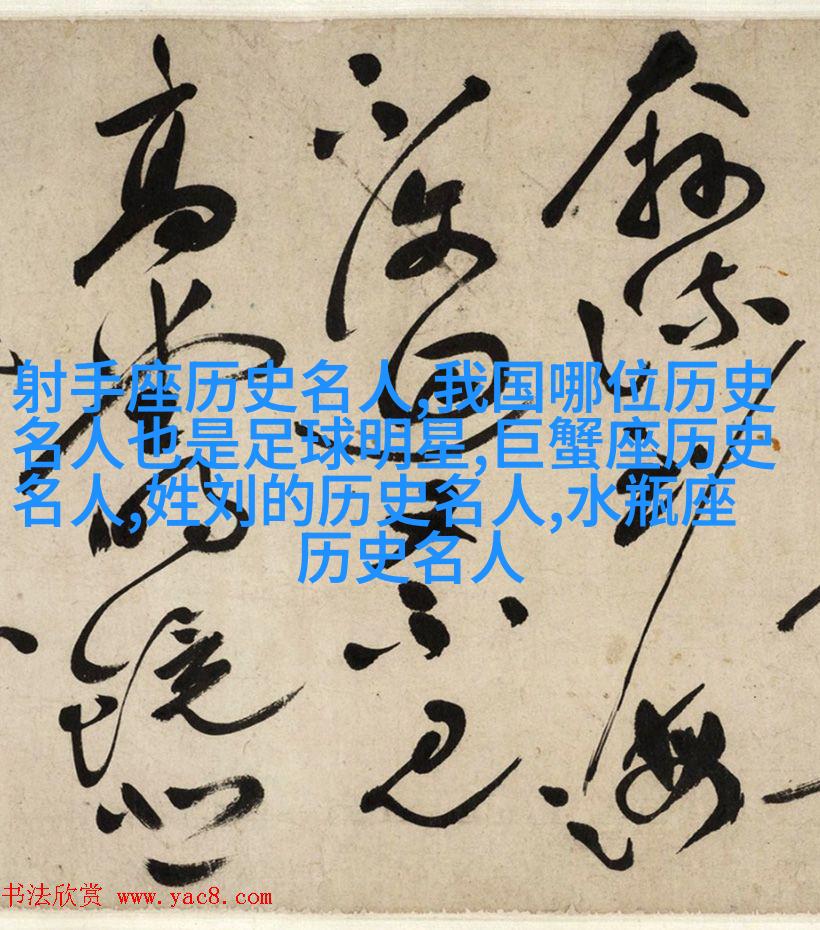 奔流到海
不復回 不見
高堂明鏡悲
射手座历史名人,我国哪位历史
名人也是足球明星,巨蟹座历史
名人,姓刘的历史名人,水瓶座
历史名人
书法欣赏 www.yac8.com